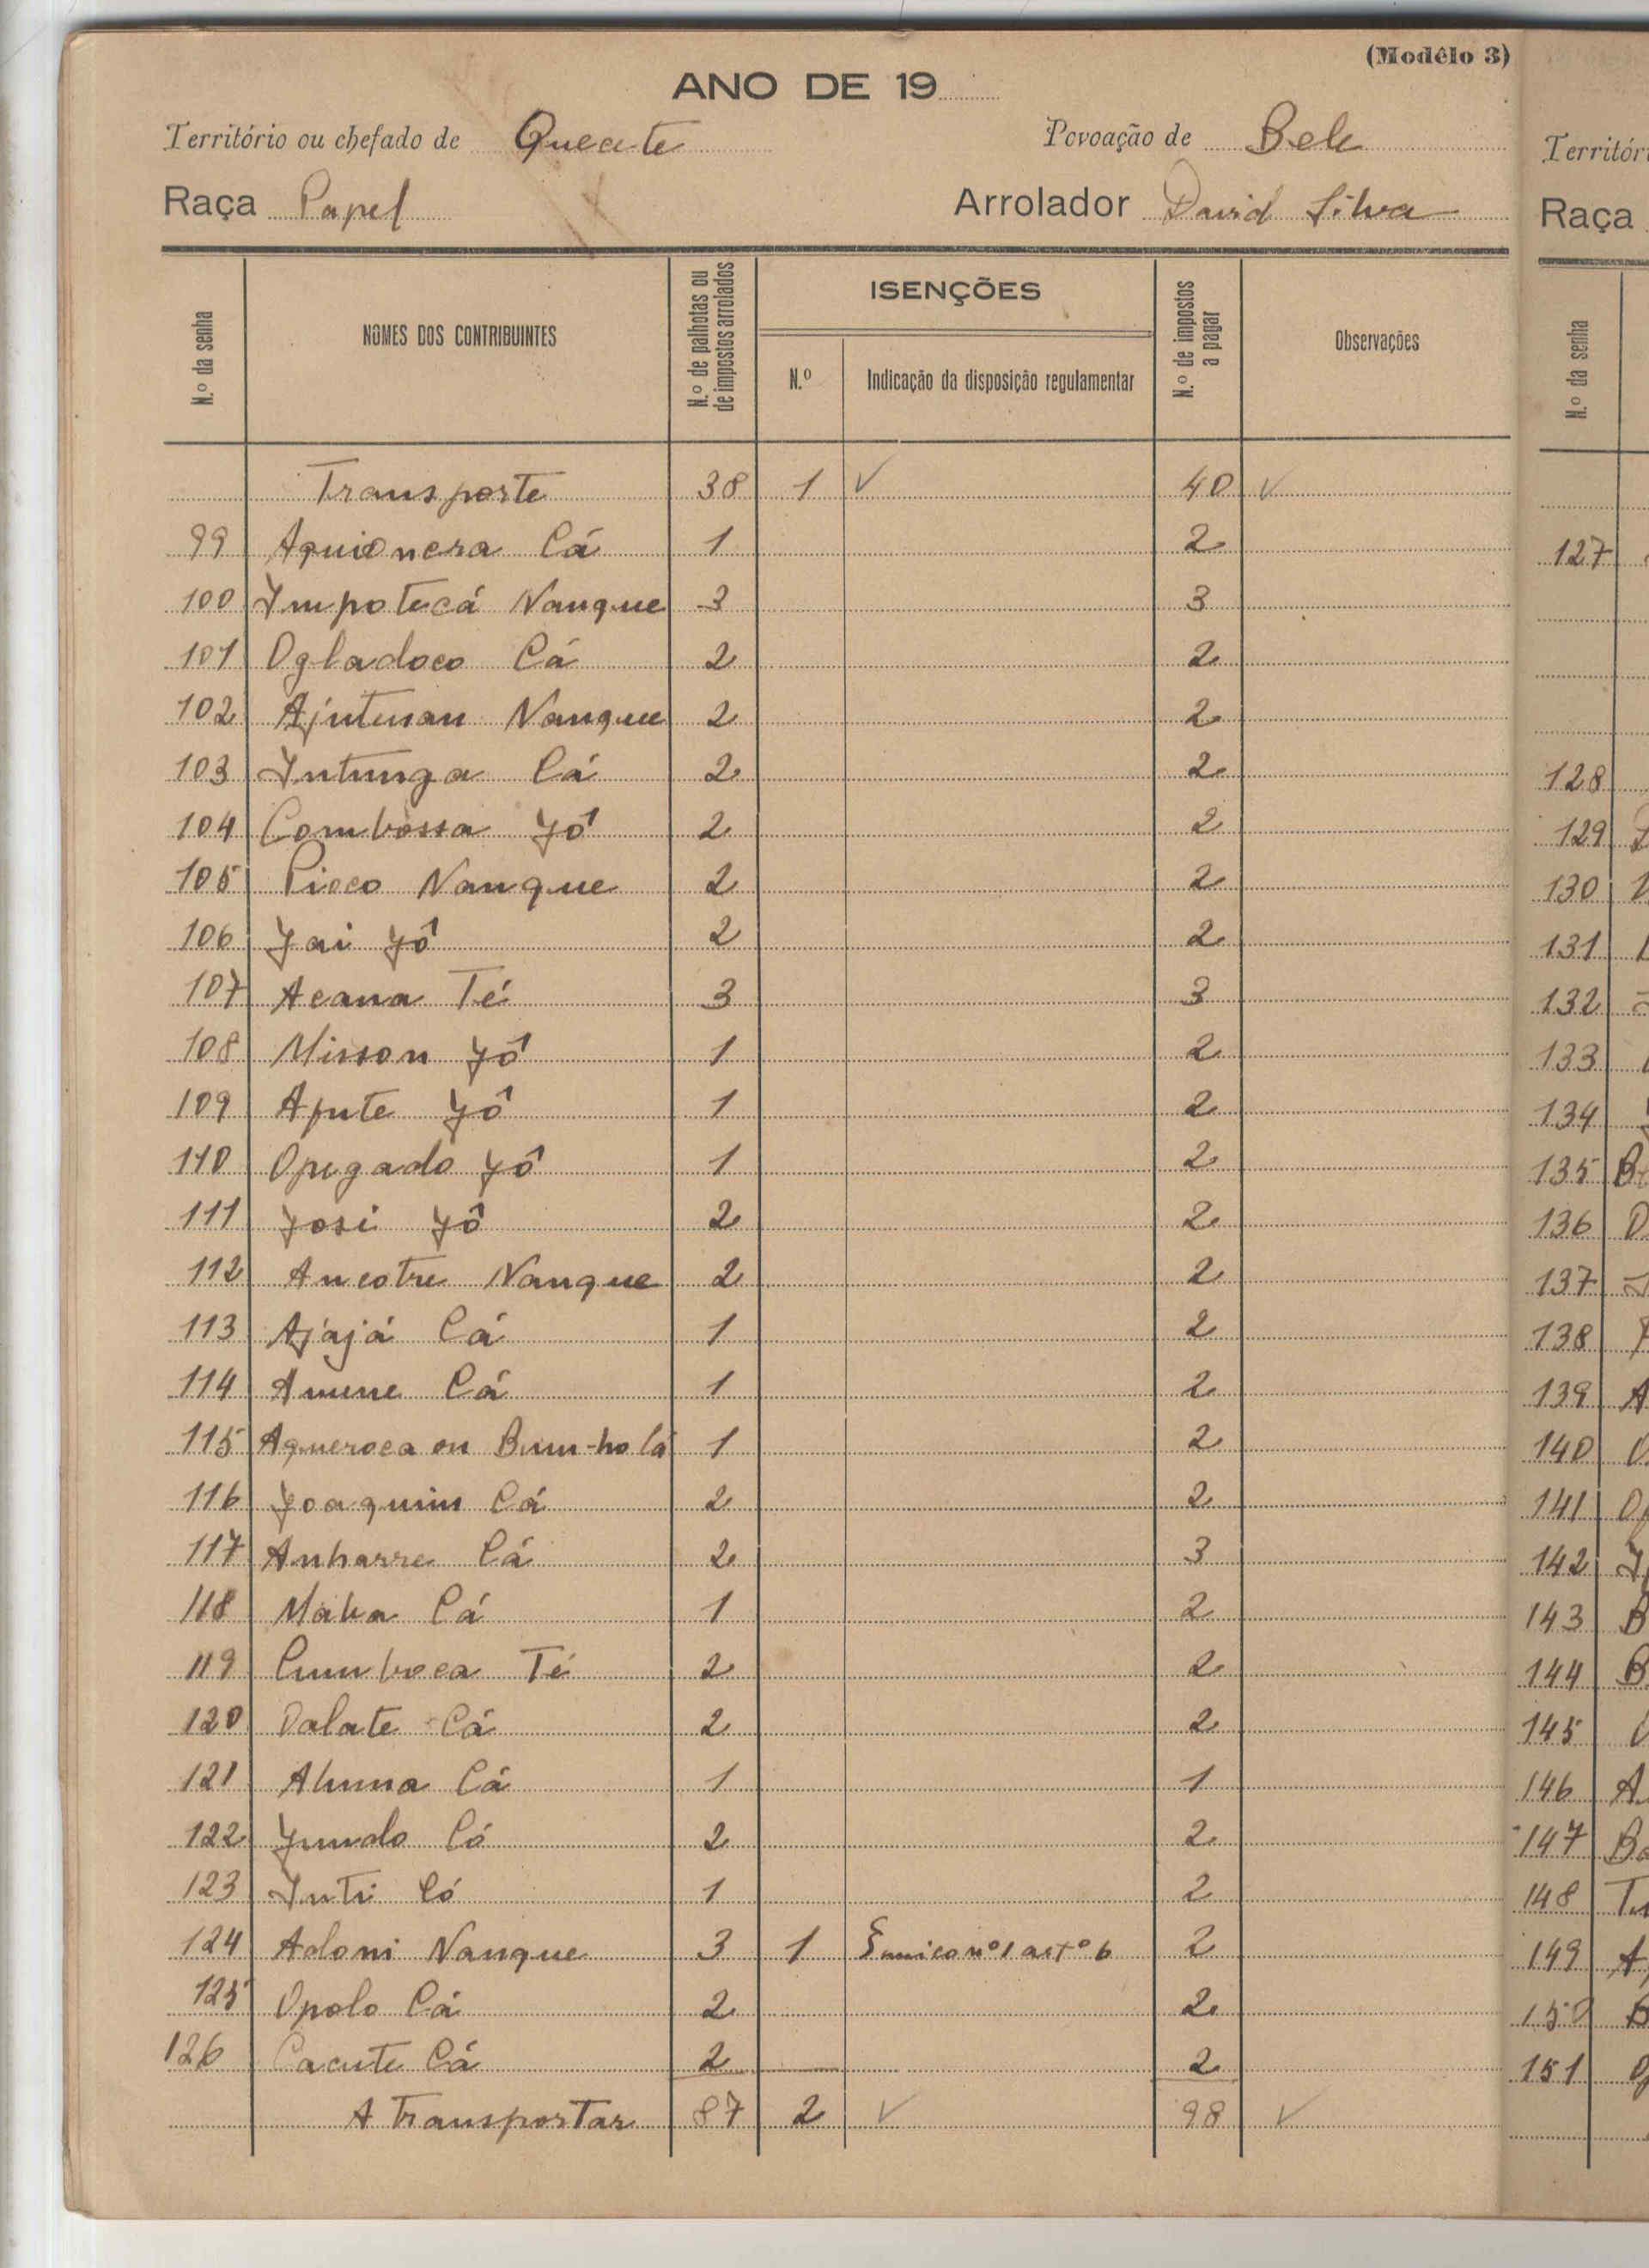 (Modêlo 3)
ANO DE 19
Território ou chefado de Quecete Povoação de Bele
Raça Papel Arrolador David Silva
N.º da senha NOMES DOS CONTRIBUINTES N.º de palhotas ou de impostos arrolados ISENÇÕES N.º Indicação da disposição regulamentar N.º de impostos a pagar Observações
Transporte 38 1 ✓ 40 ✓
99 Aquionera Cá 1 2
100 Impotecá Nanque 3 3
101 Ogladoco Cá 2 2
102 Ajutenan Nanque 2 2
103 Intunga Cá 2 2
104 Combossa Jô 2 2
105 Pioco Nanque 2 2
106 Jai Jô 2 2
107 Acana Té 3 3
108 Misson Jô 1 2
109 Apute Jô 1 2
110 Opegado Jô 1 2
111 José Jô 2 2
112 Ancotre Nanque 2 2
113 Ajajá Cá 1 2
114 Amene Cá 1 2
115 Aqueroca ou Bum-ho Cá 1 2
116 Joaquim Cá 2 2
117 Anharre Cá 2 3
118 Maba Cá 1 2
119 Cumboca Té 2 2
120 Dalate Cá 2 2
121 Ahuna Cá 1 1
122 Jundo Có 2 2
123 Inti Có 1 2
124 Adoni Nanque 3 1 § unico nº 1 artº 6 2
125 Opolo Cá 2 2
126 Cacute Cá 2 2
A Transportar 87 2 ✓ 98 ✓
Territóri
Raça
N.º da senha
127
128
129
130
131
132
133
134
135
136
137
138
139 A
140
141
142
143 B
144 B
145
146 A
147 Ba
148
149 A
150 B
151